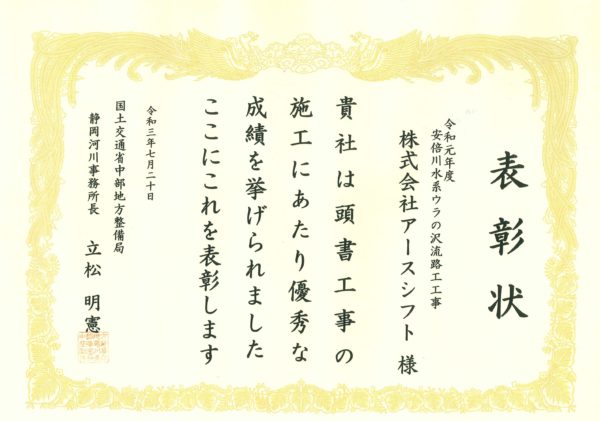 表彰状
令和元年度
安倍川水系ウラの沢流路工工事
株式会社アースシフト 様
貴社は頭書工事の
施工にあたり優秀な
成績を挙げられました
ここにこれを表彰します
令和三年七月二十日
国土交通省中部地方整備局
静岡河川事務所長 立松 明憲